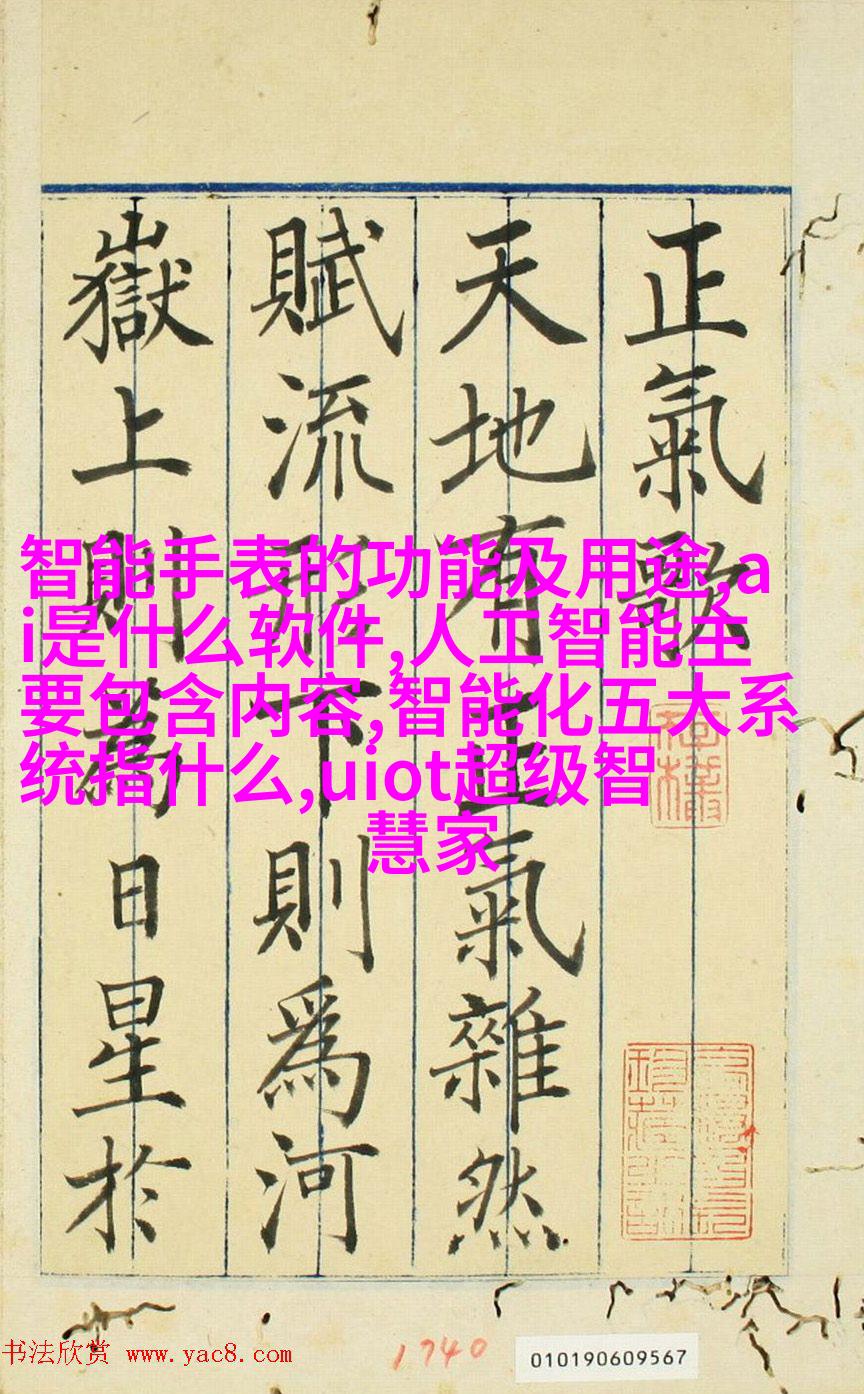 正氣歌
天地有正氣雜然
賦流形下則為河
嶽上則為日星於
智能手表的功能及用途,a
i是什么软件,人工智能主
要包含内容,智能化五大系
统指什么,uiot超级智
慧家
书法欣赏 www.yac8.com
1740
010190609567